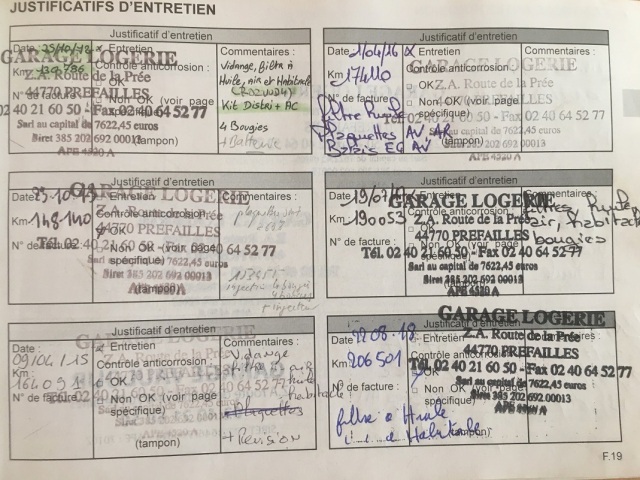 JUSTIFICATIFS D'ENTRETIEN
Justificatif d'entretien
Date : 25/10/12 x Entretien
Km : 129786 Contrôle anticorrosion :
N° de facture :
□ OK
□ Non OK (voir page spécifique)
(tampon)
Commentaires :
Vidange, filtre à
Huile, air et Habitacle
Kit Distri + AC
4 Bougies
+ Batterie
GARAGE LOGERIE
Z.A. Route de la Prée
44770 PREFAILLES
02 40 21 60 50 - Fax 02 40 64 52 77
Sarl au capital de 7622,45 euros
Siret 385 202 692 00013
APE 4520 A
Justificatif d'entretien
Date : x Entretien
Km : 148140 Contrôle anticorrosion :
N° de facture :
OK
Non OK (voir page
spécifique)
(tampon)
Commentaires :
GARAGE LOGERIE
Z.A. Route de la Prée
44770 PREFAILLES
Tél. 02 40 21 60 50 - Fax 02 40 64 52 77
Sarl au capital de 7622,45 euros
Siret 385 202 692 00013
APE 4520 A
Justificatif d'entretien
Date : 09/04/15 Entretien
Km : 164091 Contrôle anticorrosion :
N° de facture :
OK
Non OK (voir page
spécifique)
(tampon)
Commentaires :
Vidange
habitacle
plaquettes
+ Révision
GARAGE LOGERIE
Z.A. Route de la Prée
Justificatif d'entretien
Date : 1/04/16 x Entretien
Km : 177410 Contrôle anticorrosion :
N° de facture :
□ OK
□ Non OK (voir page
spécifique)
(tampon)
Commentaires :
filtre Huile
Plaquettes AV AR
Balais EG AV
GARAGE LOGERIE
Z.A. Route de la Prée
44770 PREFAILLES
02 40 21 60 50 - Fax 02 40 64 52 77
Sarl au capital de 7622,45 euros
Siret 385 202 692 00013
APE 4520 A
Justificatif d'entretien
Entretien
Km : 190053 Contrôle anticorrosion :
N° de facture :
OK
Non OK (voir page
spécifique)
(tampon)
Commentaires :
filtres Huile
air, habitacle
bougies
GARAGE LOGERIE
Z.A. Route de la Prée
44770 PREFAILLES
Tél. 02 40 21 60 50 - Fax 02 40 64 52 77
Sarl au capital de 7622,45 euros
Siret 385 202 692 00013
APE 4520 A
Justificatif d'entretien
Date : 22 08 18 Entretien
Km : 206501 Contrôle anticorrosion :
N° de facture :
OK
□ Non OK (voir page
spécifique)
(tampon)
Commentaires :
filtre à Huile
Habitacle
GARAGE LOGERIE
Z.A. Route de la Prée
44770 PREFAILLES
02 40 21 60 50 - Fax 02 40 64 52 77
Sarl au capital de 7622,45 euros
Siret 385 202 692 00013
APE 4520 A
F.19